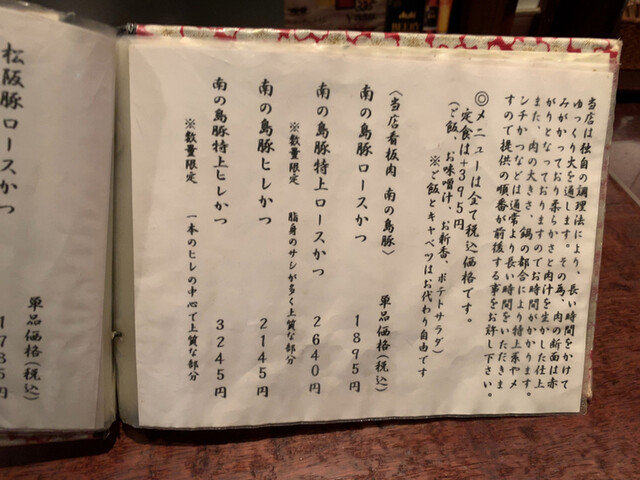 当店は独自の調理法により、長い時間をかけて
ゆっくり火を通します。その為、肉の断面は赤
みがかっており柔らかさと肉汁を生かした仕上
がりとなっておりますのでお時間がかかります。
また、肉の大きさ、鍋の都合により特上系やメ
ンチかつなどは通常より長い時間をいただきま
すので提供の順番が前後する事をお許し下さい。
◎メニューは全て税込価格です。
定食は+395円
(ご飯、お味噌汁、お新香、ポテトサラダ)
※ご飯とキャベツはお代わり自由です
〈当店看板肉 南の島豚〉
単品価格(税込)
南の島豚ロースかつ 1895円
南の島豚特上ロースかつ 2640円
※数量限定 脂身のサシが多く上質な部分
南の島豚ヒレかつ 2145円
南の島豚特上ヒレかつ 3245円
※数量限定 一本のヒレの中心で上質な部分
単品価格(税込)
松阪豚ロースかつ 1785円